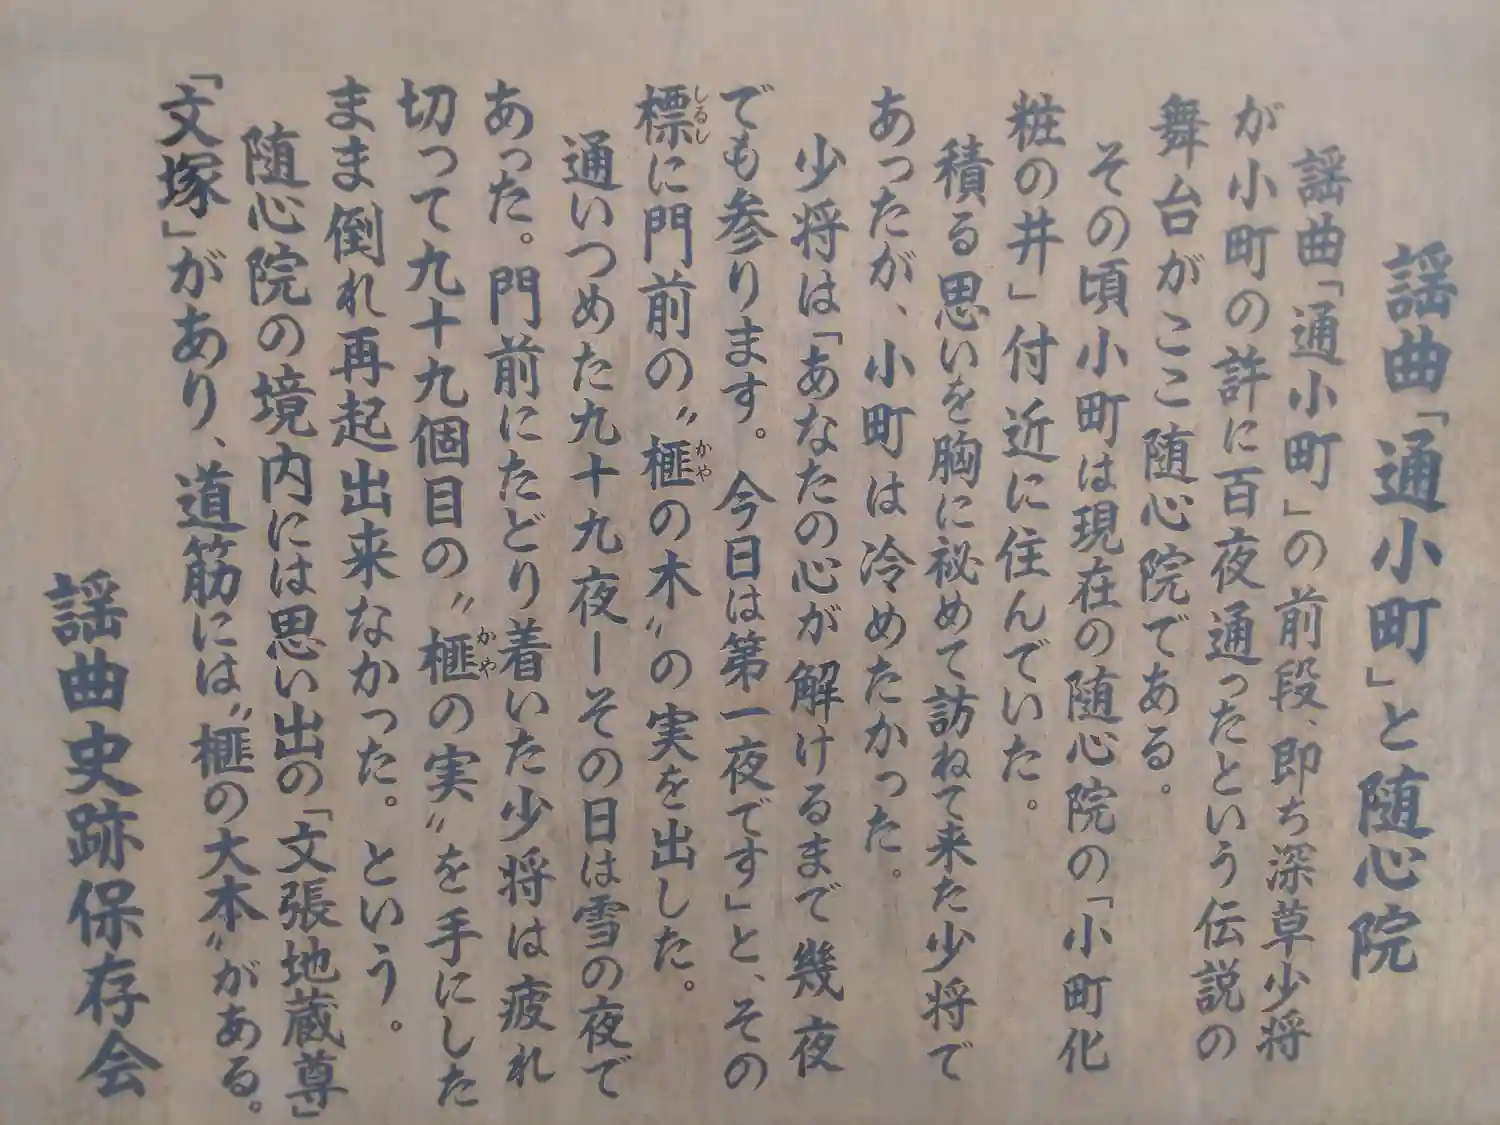 謡曲「通小町」と随心院
謡曲「通小町」の前段、即ち深草少将
が小町の許に百夜通ったという伝説の
舞台がここ随心院である。
その頃小町は現在の随心院の「小町化
粧の井」付近に住んでいた。
積る思いを胸に祕めて訪ねて来た少将で
あったが、小町は冷めたかった。
少将は「あなたの心が解けるまで幾夜
でも参ります。今日は第一夜です」と、その
標しるしに門前の〝榧かやの木〟の実を出した。
通いつめた九十九夜ーその日は雪の夜で
あった。門前にたどり着いた少将は疲れ
切って九十九個目の〝榧かやの実〟を手にした
まま倒れ再起出来なかった。という。
随心院の境内には思い出の「文張地蔵尊」
「文塚」があり、道筋には〝榧の大本〟がある。
謡曲史跡保存会